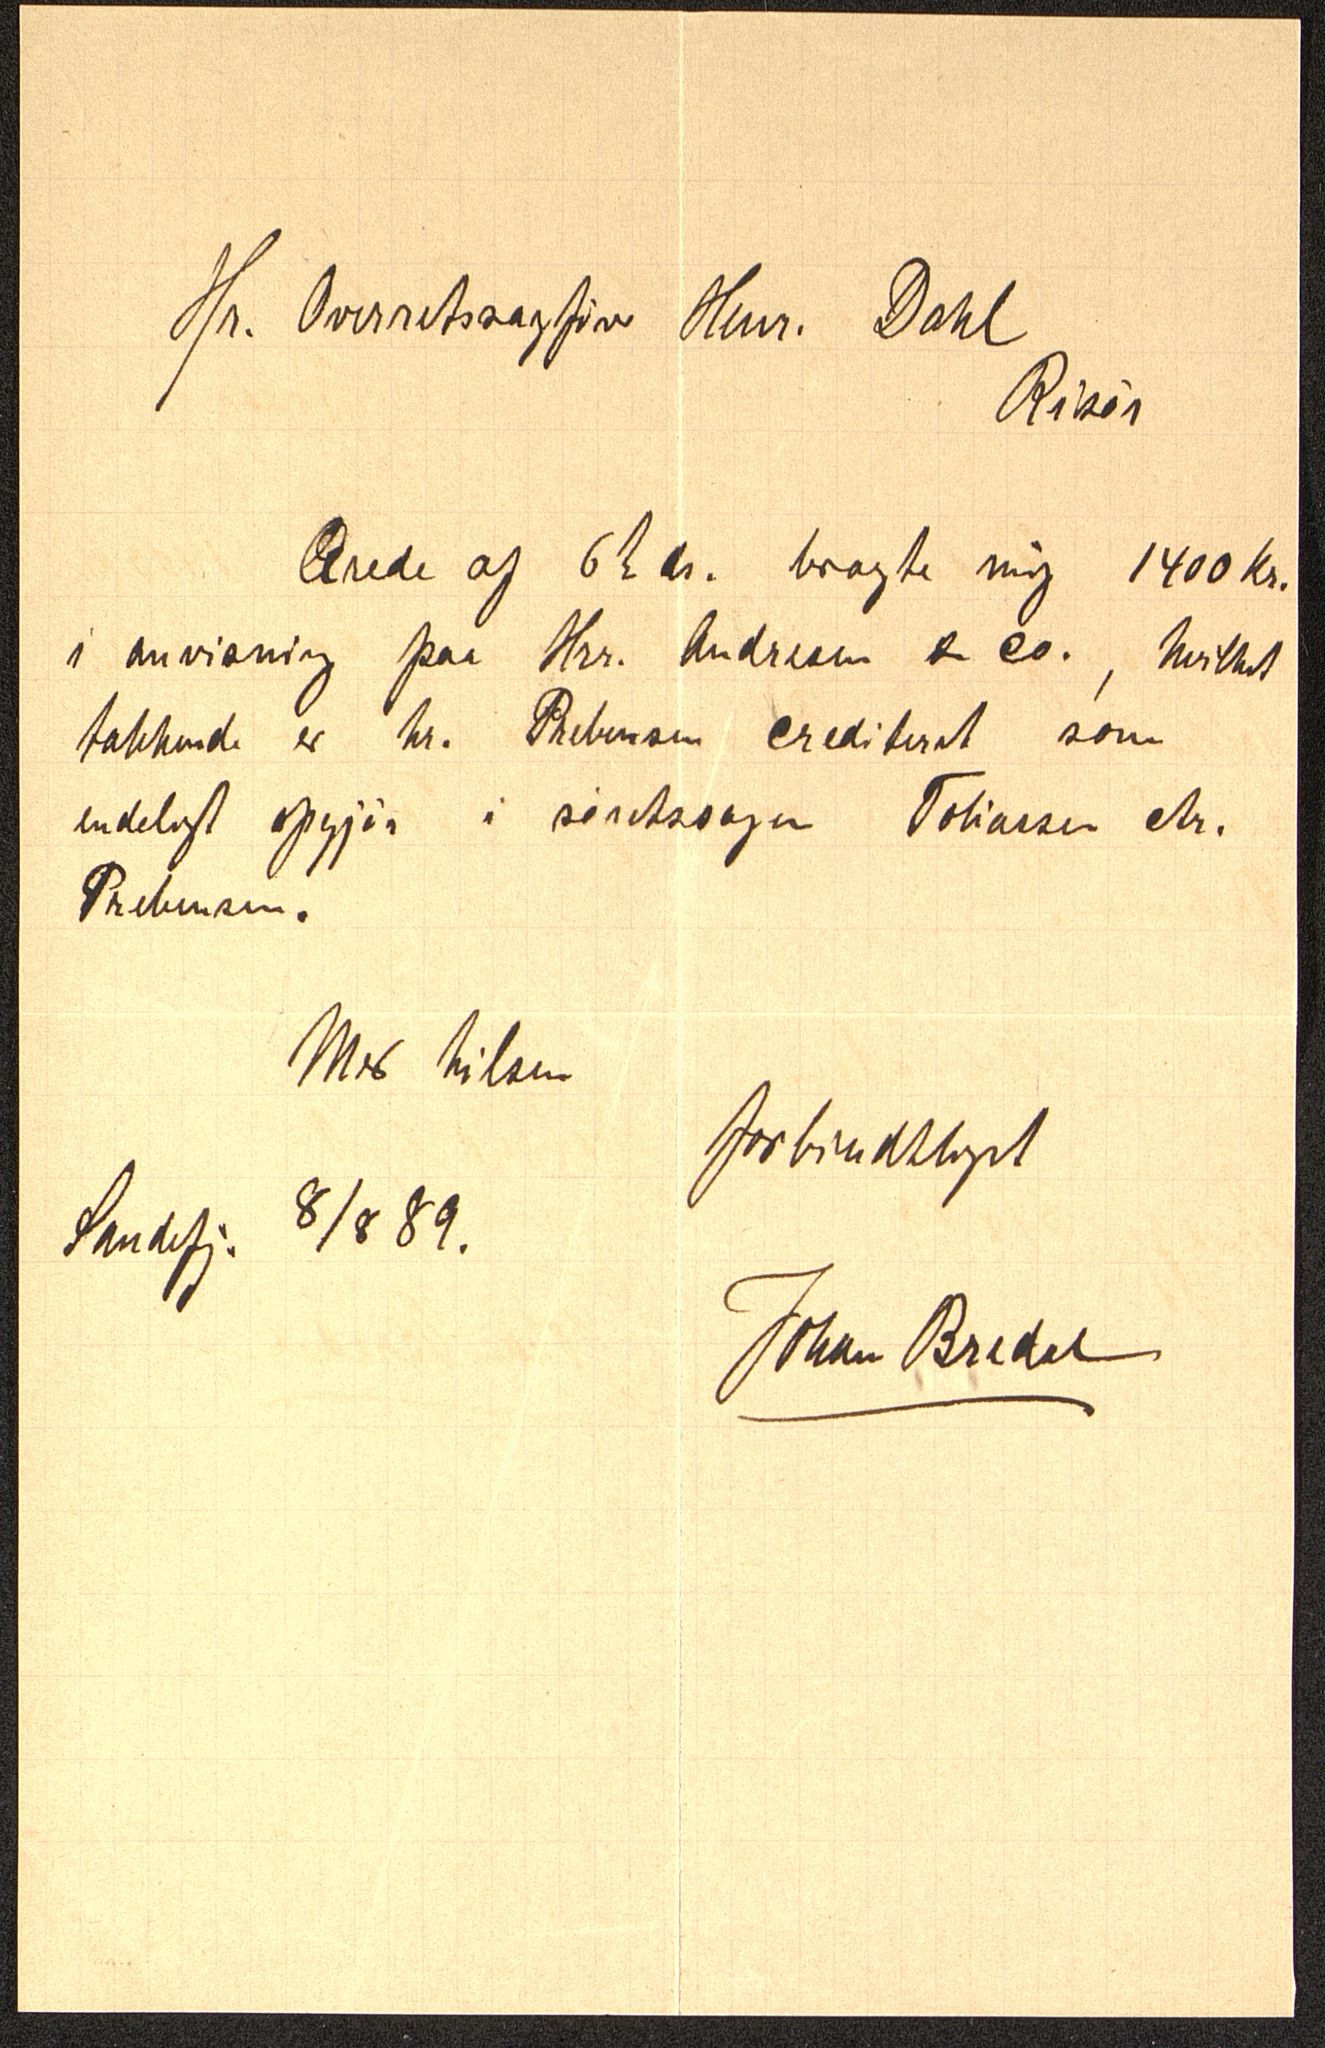 Hr. Overretssagfører Henr. Dahl
Risör
Ærede af 6te ds. bragte mig 1400 Kr.
i anvisning paa Hrr. Andresen & Co., hvilket
takkende er hr. Prebensen crediteret som
endeligt opgjör i söretssagen Tobiassen ctr.
Prebensen.
Med hilsen
forbindtligst
Sandefj. 8/8 89.
Johan Bredal